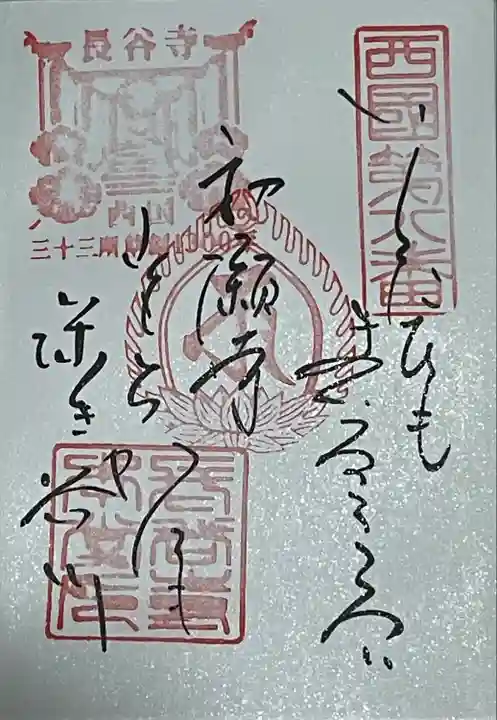 西國第八番
いくたひも
まいるこころハ
初瀬寺
山もちかひも
深き谷川
長谷寺
西国
三十三所